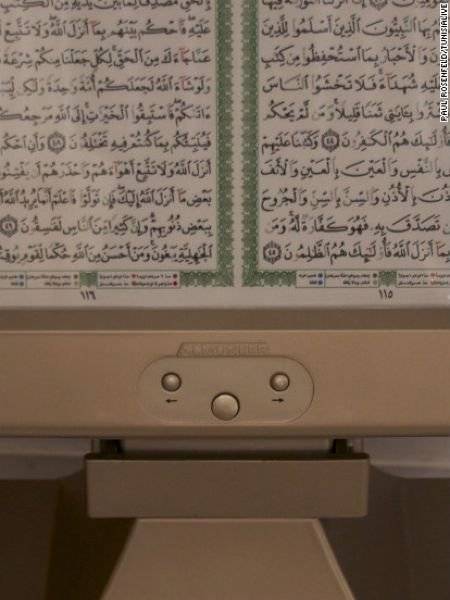 بِهَا ٱلنَّبِيُّونَ ٱلَّذِينَ أَسۡلَمُواْ لِلَّذِينَ
وَٱلۡأَحۡبَارُ بِمَا ٱسۡتُحۡفِظُواْ مِن كِتَٰبِ
شُهَدَآءَۚ فَلَا تَخۡشَوُاْ ٱلنَّاسَ
بِـَٔايَٰتِي ثَمَنٗا قَلِيلٗاۚ وَمَن لَّمۡ يَحۡكُم
فَأُوْلَٰٓئِكَ هُمُ ٱلۡكَٰفِرُونَ ٤٤ وَكَتَبۡنَا عَلَيۡهِمۡ
بِٱلنَّفۡسِ وَٱلۡعَيۡنَ بِٱلۡعَيۡنِ وَٱلۡأَنفَ
بِٱلۡأُذُنِ وَٱلسِّنَّ بِٱلسِّنِّ وَٱلۡجُرُوحَ
تَصَدَّقَ بِهِۦ فَهُوَ كَفَّارَةٞ لَّهُۥۚ وَمَن
بِمَآ أَنزَلَ ٱللَّهُ فَأُوْلَٰٓئِكَ هُمُ ٱلظَّٰلِمُونَ ٤٥
١١٥
عَلَيۡهِۖ فَٱحۡكُم بَيۡنَهُم بِمَآ أَنزَلَ ٱللَّهُۖ وَلَا تَتَّبِعۡ
جَآءَكَ مِنَ ٱلۡحَقِّۚ لِكُلّٖ جَعَلۡنَا مِنكُمۡ شِرۡعَةٗ
وَلَوۡ شَآءَ ٱللَّهُ لَجَعَلَكُمۡ أُمَّةٗ وَٰحِدَةٗ وَلَٰكِن
ءَاتَىٰكُمۡۖ فَٱسۡتَبِقُواْ ٱلۡخَيۡرَٰتِۚ إِلَى ٱللَّهِ مَرۡجِعُكُمۡ
فَيُنَبِّئُكُم بِمَا كُنتُمۡ فِيهِ تَخۡتَلِفُونَ ٤٨ وَأَنِ ٱحۡكُم
أَنزَلَ ٱللَّهُ وَلَا تَتَّبِعۡ أَهۡوَآءَهُمۡ وَٱحۡذَرۡهُمۡ أَن
بَعۡضِ مَآ أَنزَلَ ٱللَّهُ إِلَيۡكَۖ فَإِن تَوَلَّوۡاْ فَٱعۡلَمۡ أَنَّمَا يُرِيدُ ٱللَّهُ
بِبَعۡضِ ذُنُوبِهِمۡۗ وَإِنَّ كَثِيرٗا مِّنَ ٱلنَّاسِ لَفَٰسِقُونَ ٤٩
ٱلۡجَٰهِلِيَّةِ يَبۡغُونَۚ وَمَنۡ أَحۡسَنُ مِنَ ٱللَّهِ حُكۡمٗا لِّقَوۡمٖ
١١٦
PAUL ROSENFELD/TUNISIALIVE